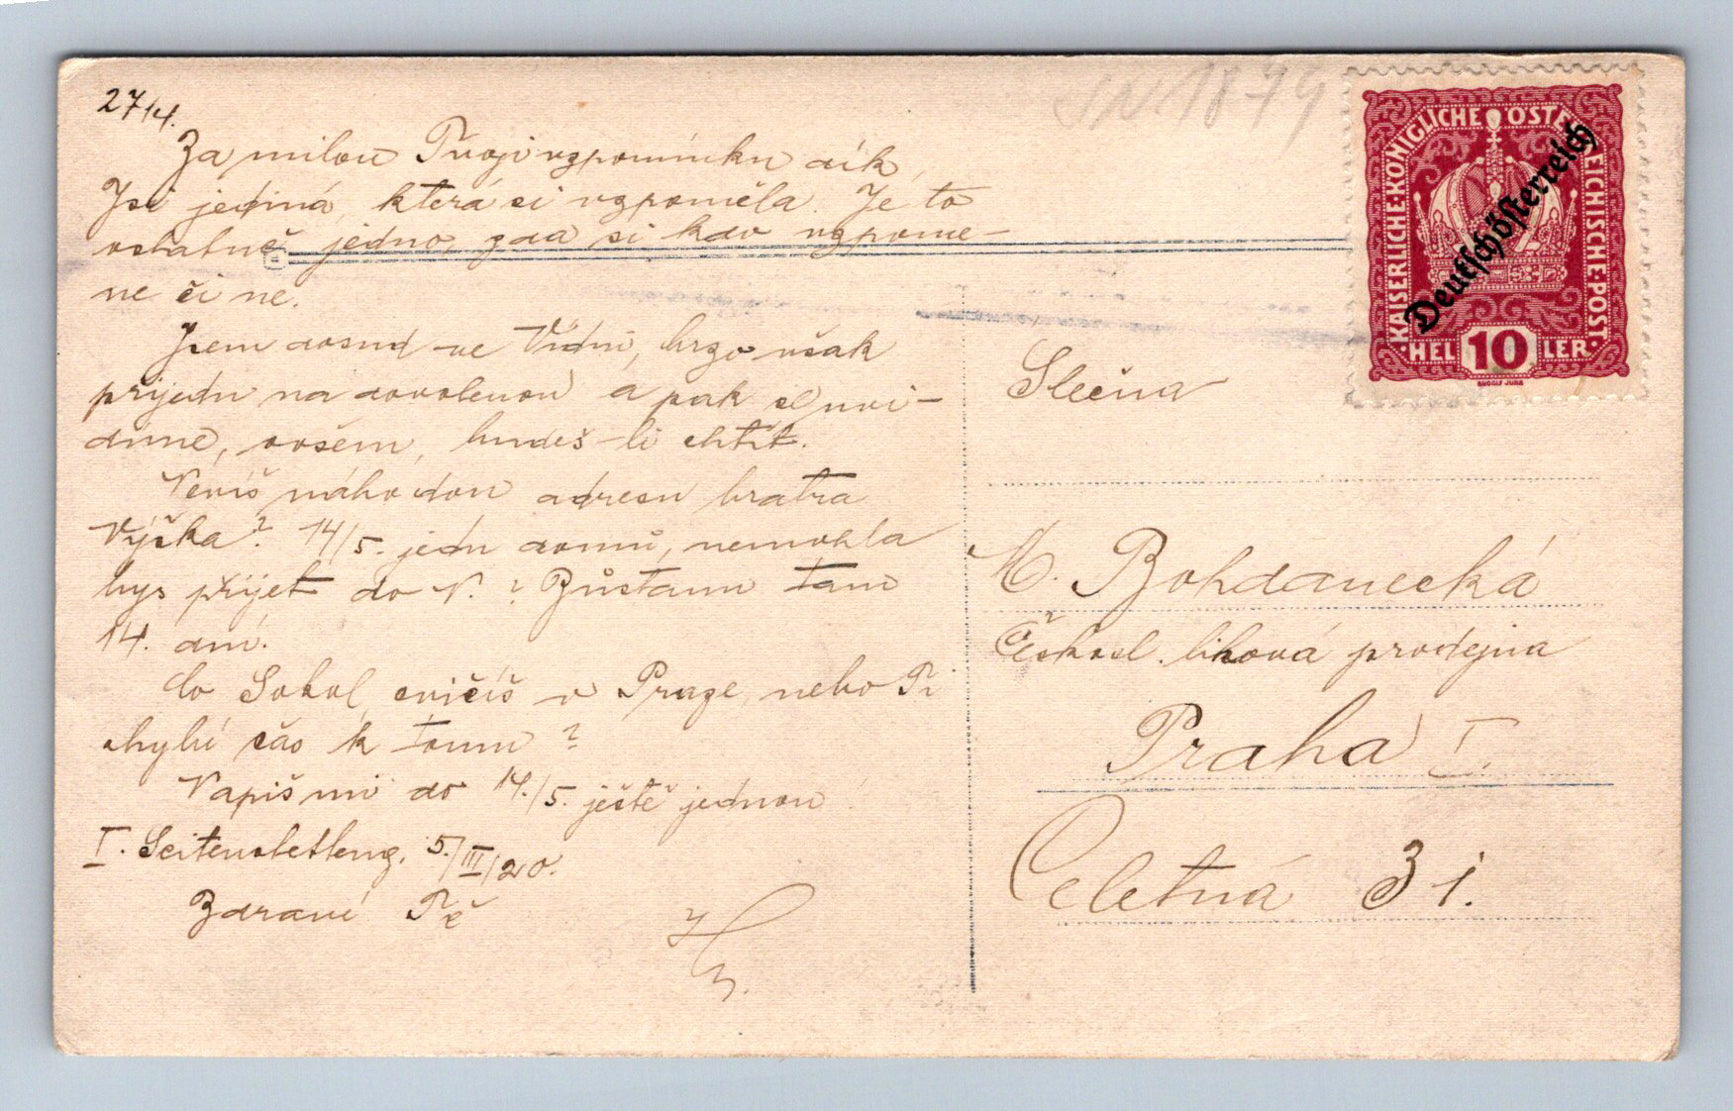 27/4.
Za milou Tvoji vzpomínku dík
Jsi jediná, která si vzpoměla. Je to
ostatně jedno, zda si kdo vzpome-
ne či ne.
Jsem dosud ve Vídni, brzo však
přijedu na dovolenou a pak se uvi-
díme, ovšem, budeš-li chtít.
Nevíš náhodou adresu bratra
Výška? 14/5. jedu domů, nemohla
bys přijet do N.? Zůstanu tam
14. dní.
Co Sokol, cvičíš v Praze, nebo Ti
chybí čas k tomu?
Napiš mi do 14./5. ještě jednou
I. 5/III/20.
Zdraví Tě
1879
KAISERLICHE·KÖNIGLICHE ÖSTERREICHISCHE·POST·
Deutschösterreich
HEL 10 LER
RUDOLF JUNK
Slečna
M. Bohdanecká
Českosl. lihová prodejna
Praha I.
Celetná 31.